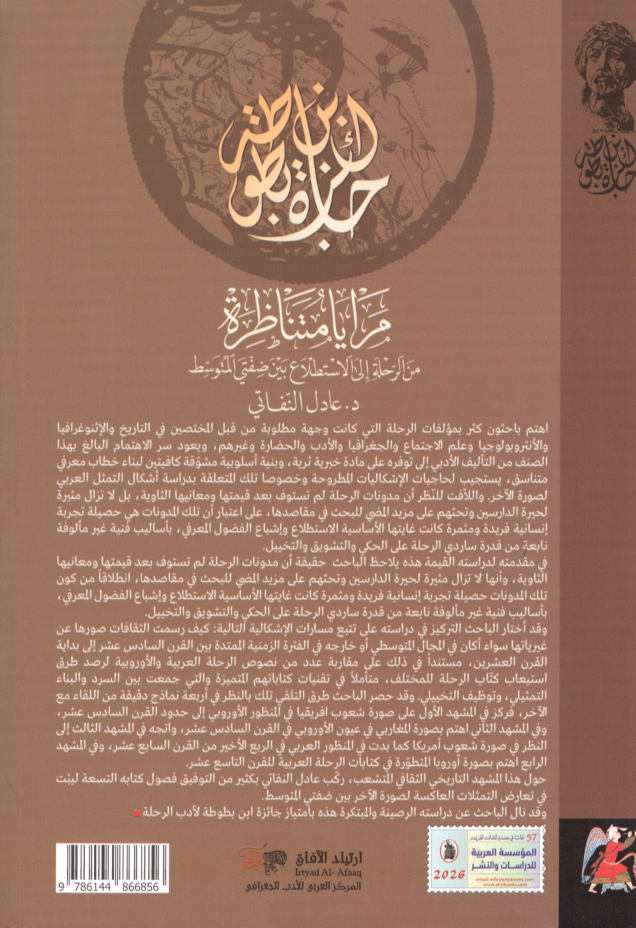 جائزة ابن بطوطة
مرايا متناظرة
من الرحلة إلى الاستطلاع بين ضفتي المتوسط
د. عادل النفاتي
اهتم باحثون كثر بمؤلفات الرحلة التي كانت وجهة مطلوبة من قبل المختصين في التاريخ والإثنوغرافيا
والأنثروبولوجيا وعلم الاجتماع والجغرافيا والأدب والحضارة وغيرهم، ويعود سر الاهتمام البالغ بهذا
الصنف من التأليف الأدبي إلى توفره على مادة خبرية ثرية، وبنية أسلوبية مشوّقة كافيتين لبناء خطاب معرفي
متناسق، يستجيب لحاجيات الإشكاليات المطروحة وخصوصا تلك المتعلقة بدراسة أشكال التمثل العربي
لصورة الآخر. واللاّفت للنّظر أن مدونات الرحلة لم تستوف بعد قيمتها ومعانيها الثاوية، بل لا تزال مثيرة
لحيرة الدارسين وتحثهم على مزيد المضي للبحث في مقاصدها، على اعتبار أن تلك المدونات هي حصيلة تجربة
إنسانية فريدة ومثمرة كانت غايتها الأساسية الاستطلاع وإشباع الفضول المعرفي، بأساليب فنية غير مألوفة
نابعة من قدرة ساردي الرحلة على الحكي والتشويق والتخييل.
في مقدمته لدراسته القيمة هذه يلاحظ الباحث حقيقة أن مدونات الرحلة لم تستوف بعد قيمتها ومعانيها
الثاوية، وأنها لا تزال مثيرة لحيرة الدارسين وتحثهم على مزيد المضي للبحث في مقاصدها، انطلاقاً من كون
تلك المدونات حصيلة تجربة إنسانية فريدة ومثمرة كانت غايتها الأساسية الاستطلاع وإشباع الفضول المعرفي،
بأساليب فنية غير مألوفة نابعة من قدرة ساردي الرحلة على الحكي والتشويق والتخييل.
وقد أختار الباحث التركيز في دراسته على تتبع مسارات الإشكالية التالية: كيف رسمت الثقافات صورها عن
غيرياتها سواء أكان في المجال المتوسطي أو خارجه في الفترة الزمنية الممتدة بين القرن السادس عشر إلى بداية
القرن العشرين، مستنداً في ذلك على مقاربة عدد من نصوص الرحلة العربية والأوروبية لرصد طرق
استيعاب كتّاب الرحلة للمختلف، متأملاً في تقنيات كتاباتهم المتميزة والتي جمعت بين السرد والبناء
التمثيلي، وتوظيف التخييلي. وقد حصر الباحث طرق التلقي تلك بالنظر في أربعة نماذج دقيقة من اللقاء مع
الآخر، فركز في المشهد الأول على صورة شعوب افريقيا في المنظور الأوروبي إلى حدود القرن السادس عشر،
وفي المشهد الثاني اهتم بصورة المغاربي في عيون الأوروبي في القرن السادس عشر، واتجه في المشهد الثالث إلى
النظر في صورة شعوب أمريكا كما بدت في المنظور العربي في الربع الأخير من القرن السابع عشر، وفي المشهد
الرابع اهتم بصورة أوروبا المتطوّرة في كتابات الرحلة العربية للقرن التاسع عشر.
حول هذا المشهد التاريخي الثقافي المتشعب، ركّب عادل النفاتي بكثير من التوفيق فصول كتابه التسعة ليبُت
في تعارض التمثلات العاكسة لصورة الآخر بين ضفتي المتوسط.
وقد نال الباحث عن دراسته الرصينة والمبتكرة هذه بامتياز جائزة ابن بطوطة لأدب الرحلة
9 786144 866856
ارتياد الآفاق
Irtyad Al- Afaaq
المركز العربي للأدب الجغرافي
57 عاماً في خدمة الثقافة العربية
المؤسسة العربية
للدراسات والنشر
2026
جائزة ابن بطوطة